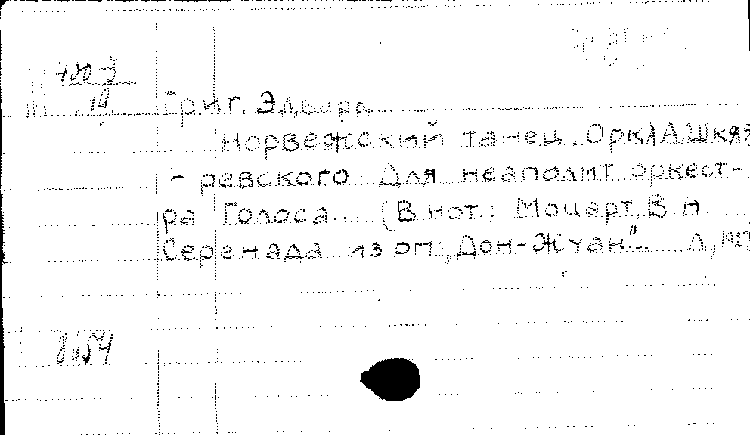 Григ, Эдвард
Норвежский танец. Орк. А. Шкя
- ревского для неаполит. оркест-
ра Голоса (В нот.: Моцарт, В. А
Серенада из оп. "Дон-Жуан". Л., 192